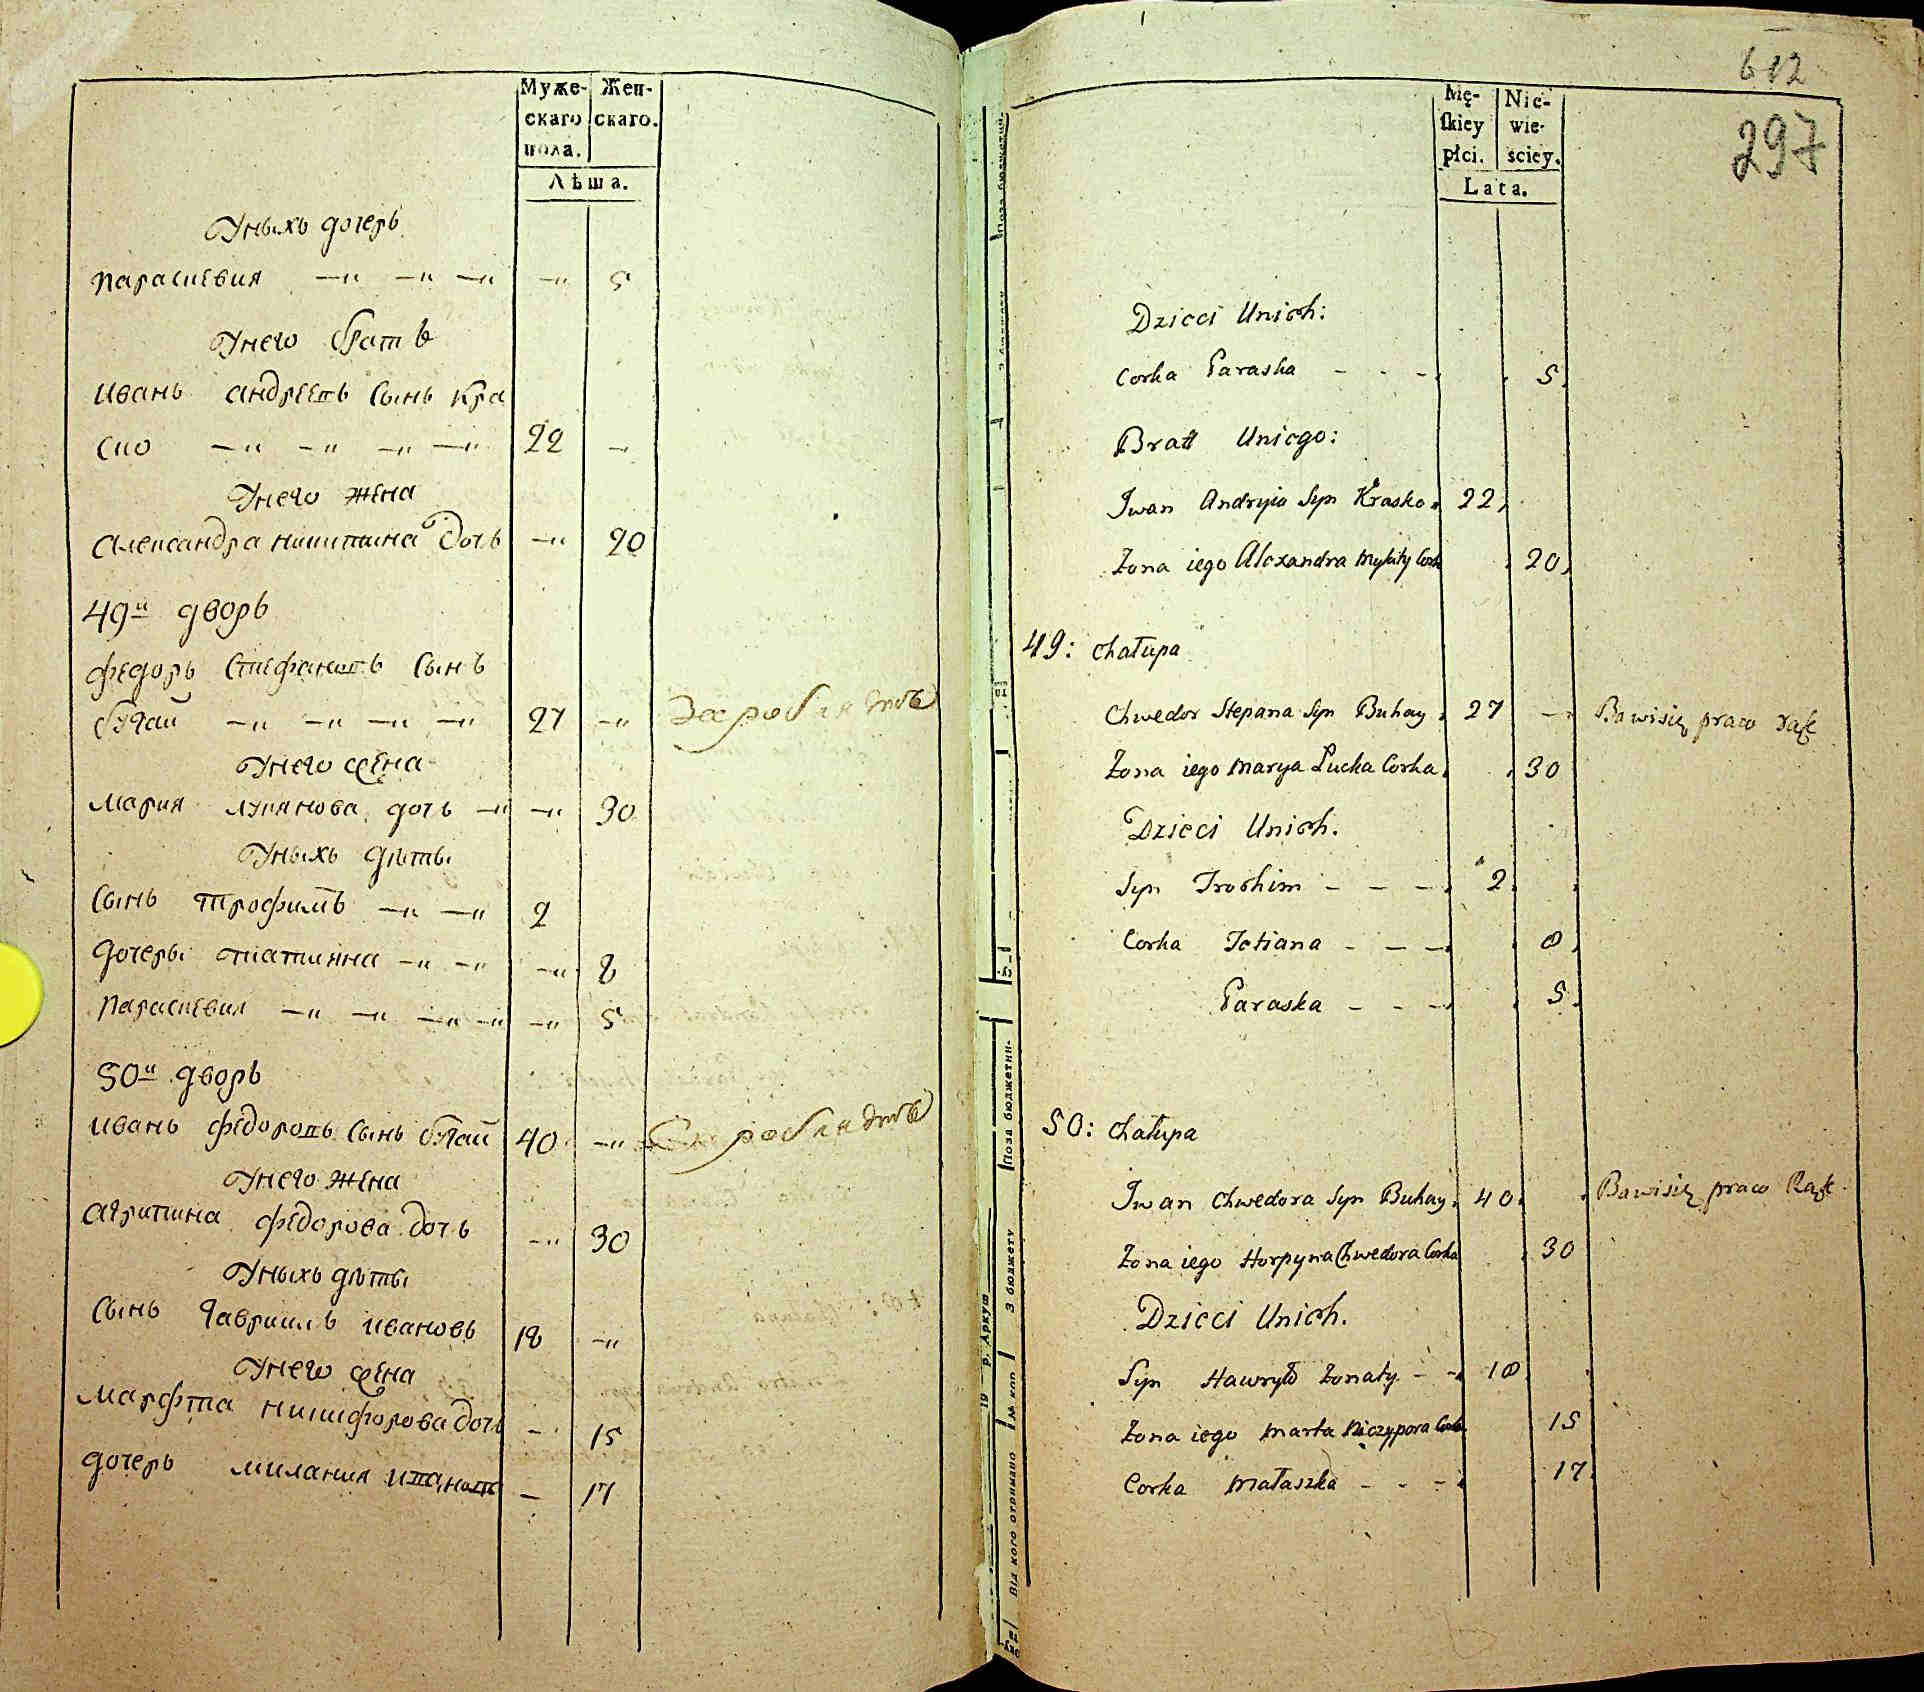 Муже-
скаго
пола.
Жен-
скаго.
Лѣта.
Уныхъ дочерь
Параскевия 5
Унего братъ
Иванъ андреевъ сынъ Кра
ско 22
Унего жена
Александра никитина дочь 20
49й дворъ
Федоръ Стефановъ сынъ
бугай 27
Унего жена
Мария лукянова дочь 30
Уныхъ дѣты
Сынъ трофимъ 2
дочеры татияна 8
Параскевия 5
50й дворъ
Иванъ федоровъ сынъ бугай 40
Унего жена
агрипина федорова дочь 30
Уныхъ дѣты
Сынъ гавриилъ ивановъ 18
Унего жена
Марфта никифорова дочь 15
дочерь милания 17
612
297
Mę-
skiey
płci.
Nie-
wie-
sciey.
Lata.
Dzieci Unich:
Corka Paraska 5
Bratt Uniego:
Iwan Andryia Syn Krasko 22
Żona iego Alexandra Mykity Corka 20
49: chałupa
Chwedor Stepana Syn Buhay 27 Bawisię praco rąk
Żona iego Marya Łucka Corka 30
Dzieci Unich.
Syn Trochim 2
Corka Tetiana 8
Paraska 5
50: chałupa
Iwan Chwedora Syn Buhay 40 Bawisię praco Rąk
Żona iego Horpyna Chwedora Corka 30
Dzieci Unich.
Syn Hawryło żonaty 18
Żona iego Marta Niczypora Corka 15
Corka Małaszka 17
Поза бюджетни-
З бюджету
р. Аркуш
Від кого отримано